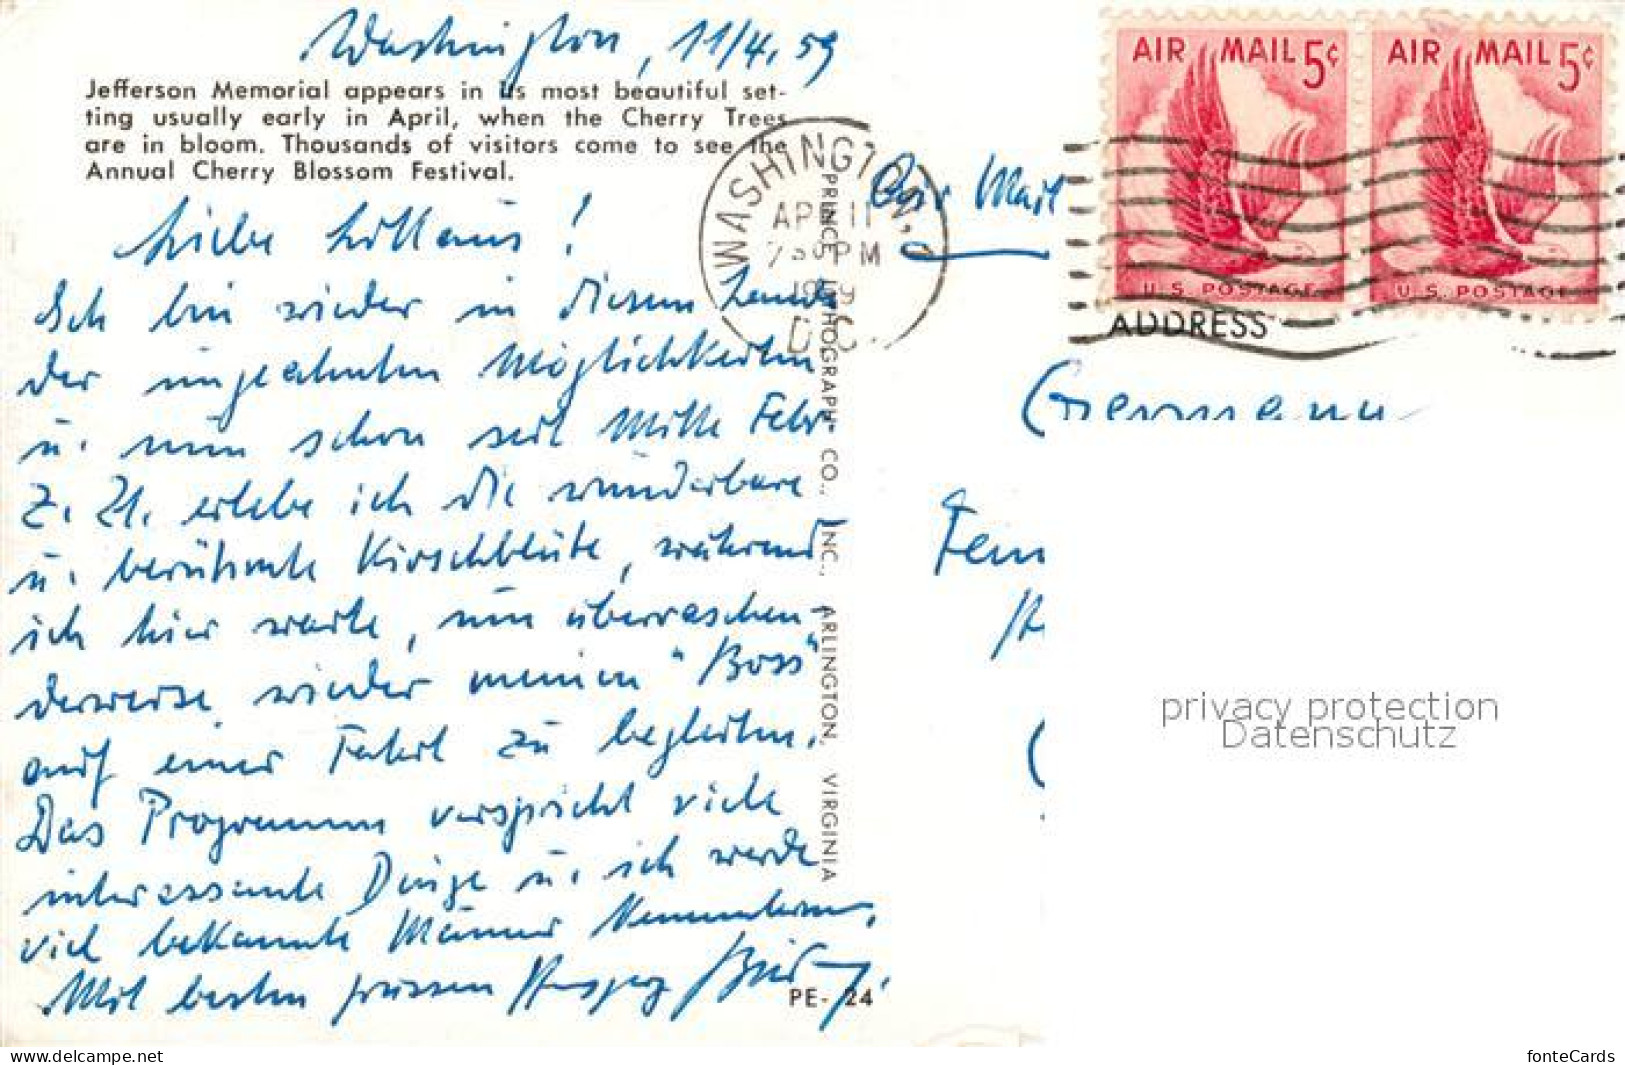 Washington, 11/4.59
Jefferson Memorial appears in its most beautiful set-
ting usually early in April, when the Cherry Trees
are in bloom. Thousands of visitors come to see the
Annual Cherry Blossom Festival.
Liebe !
Ich bin wieder in diesem Lande
der ungeahnten Möglichkeiten
u. nun schon seit Mitte Febr.
Z. Zt. erlebe ich die wunderbare
u. berühmte Kirschblüte, während
ich hier warte, um überraschen-
derweise wieder meinen "Boss"
auf einer Fahrt zu begleiten.
Das Programm verspricht viele
interessante Dinge u. ich werde
viel bekannte Männer
Mit besten Grüssen
PE- 24
PRINCE LITHOGRAPH CO., INC., ARLINGTON, VIRGINIA
WASHINGTON,
APR 11
730PM
1959
D.C.
Air Mail
AIR MAIL 5¢
U.S. POSTAGE
AIR MAIL 5¢
U.S. POSTAGE
ADDRESS
Germany
Fam
privacy protection
Datenschutz
www.delcampe.net
fonteCards